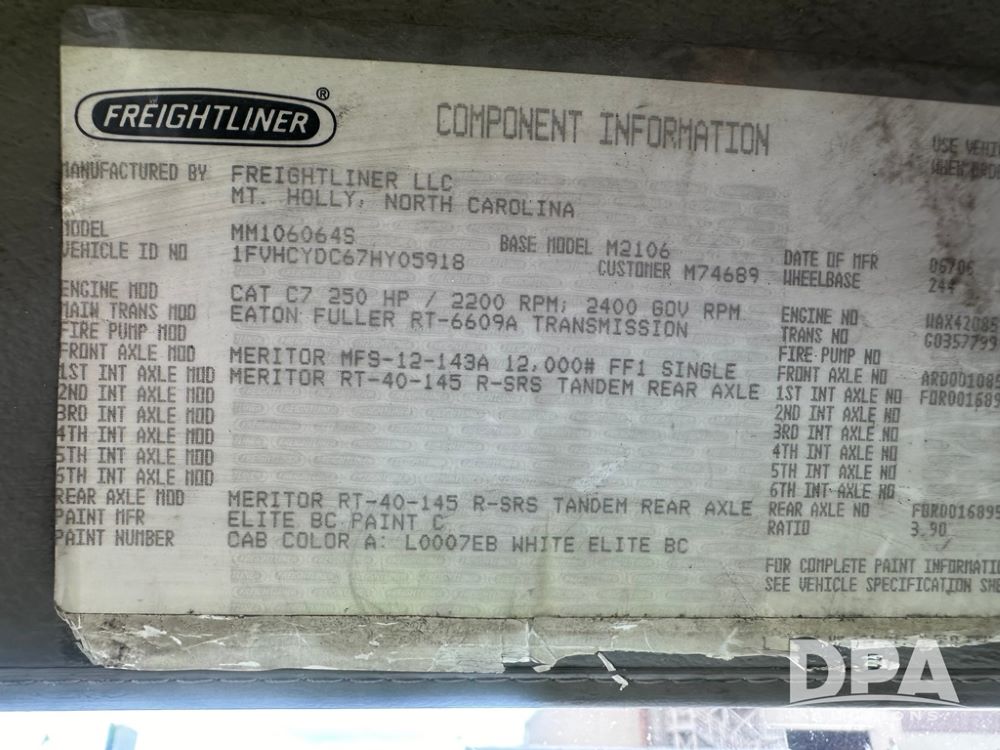 FREIGHTLINER ®
COMPONENT INFORMATION
USE VEHI
WHEN
MANUFACTURED BY FREIGHTLINER LLC
MT. HOLLY, NORTH CAROLINA
MODEL MM106064S BASE MODEL M2106 DATE OF MFR 06/06
VEHICLE ID NO 1FVHCYDC67HY05918 CUSTOMER M74689 WHEELBASE 244
ENGINE MOD CAT C7 250 HP / 2200 RPM; 2400 GOV RPM ENGINE NO WAX42085
MAIN TRANS MOD EATON FULLER RT-6609A TRANSMISSION TRANS NO C0357799
FIRE PUMP MOD FIRE PUMP NO
FRONT AXLE MOD MERITOR MFS-12-143A 12,000# FF1 SINGLE FRONT AXLE NO ARD001085
1ST INT AXLE MOD MERITOR RT-40-145 R-SRS TANDEM REAR AXLE 1ST INT AXLE NO FDR001689
2ND INT AXLE MOD 2ND INT AXLE NO
3RD INT AXLE MOD 3RD INT AXLE NO
4TH INT AXLE MOD 4TH INT AXLE NO
5TH INT AXLE MOD 5TH INT AXLE NO
6TH INT AXLE MOD 6TH INT AXLE NO
REAR AXLE MOD MERITOR RT-40-145 R-SRS TANDEM REAR AXLE REAR AXLE NO FBRD016895
PAINT MFR ELITE BC PAINT C RATIO 3.90
PAINT NUMBER CAB COLOR A: L0007EB WHITE ELITE BC
FOR COMPLETE PAINT INFORMATIO
SEE VEHICLE SPECIFICATION SHE
DPA
AUCTIONS